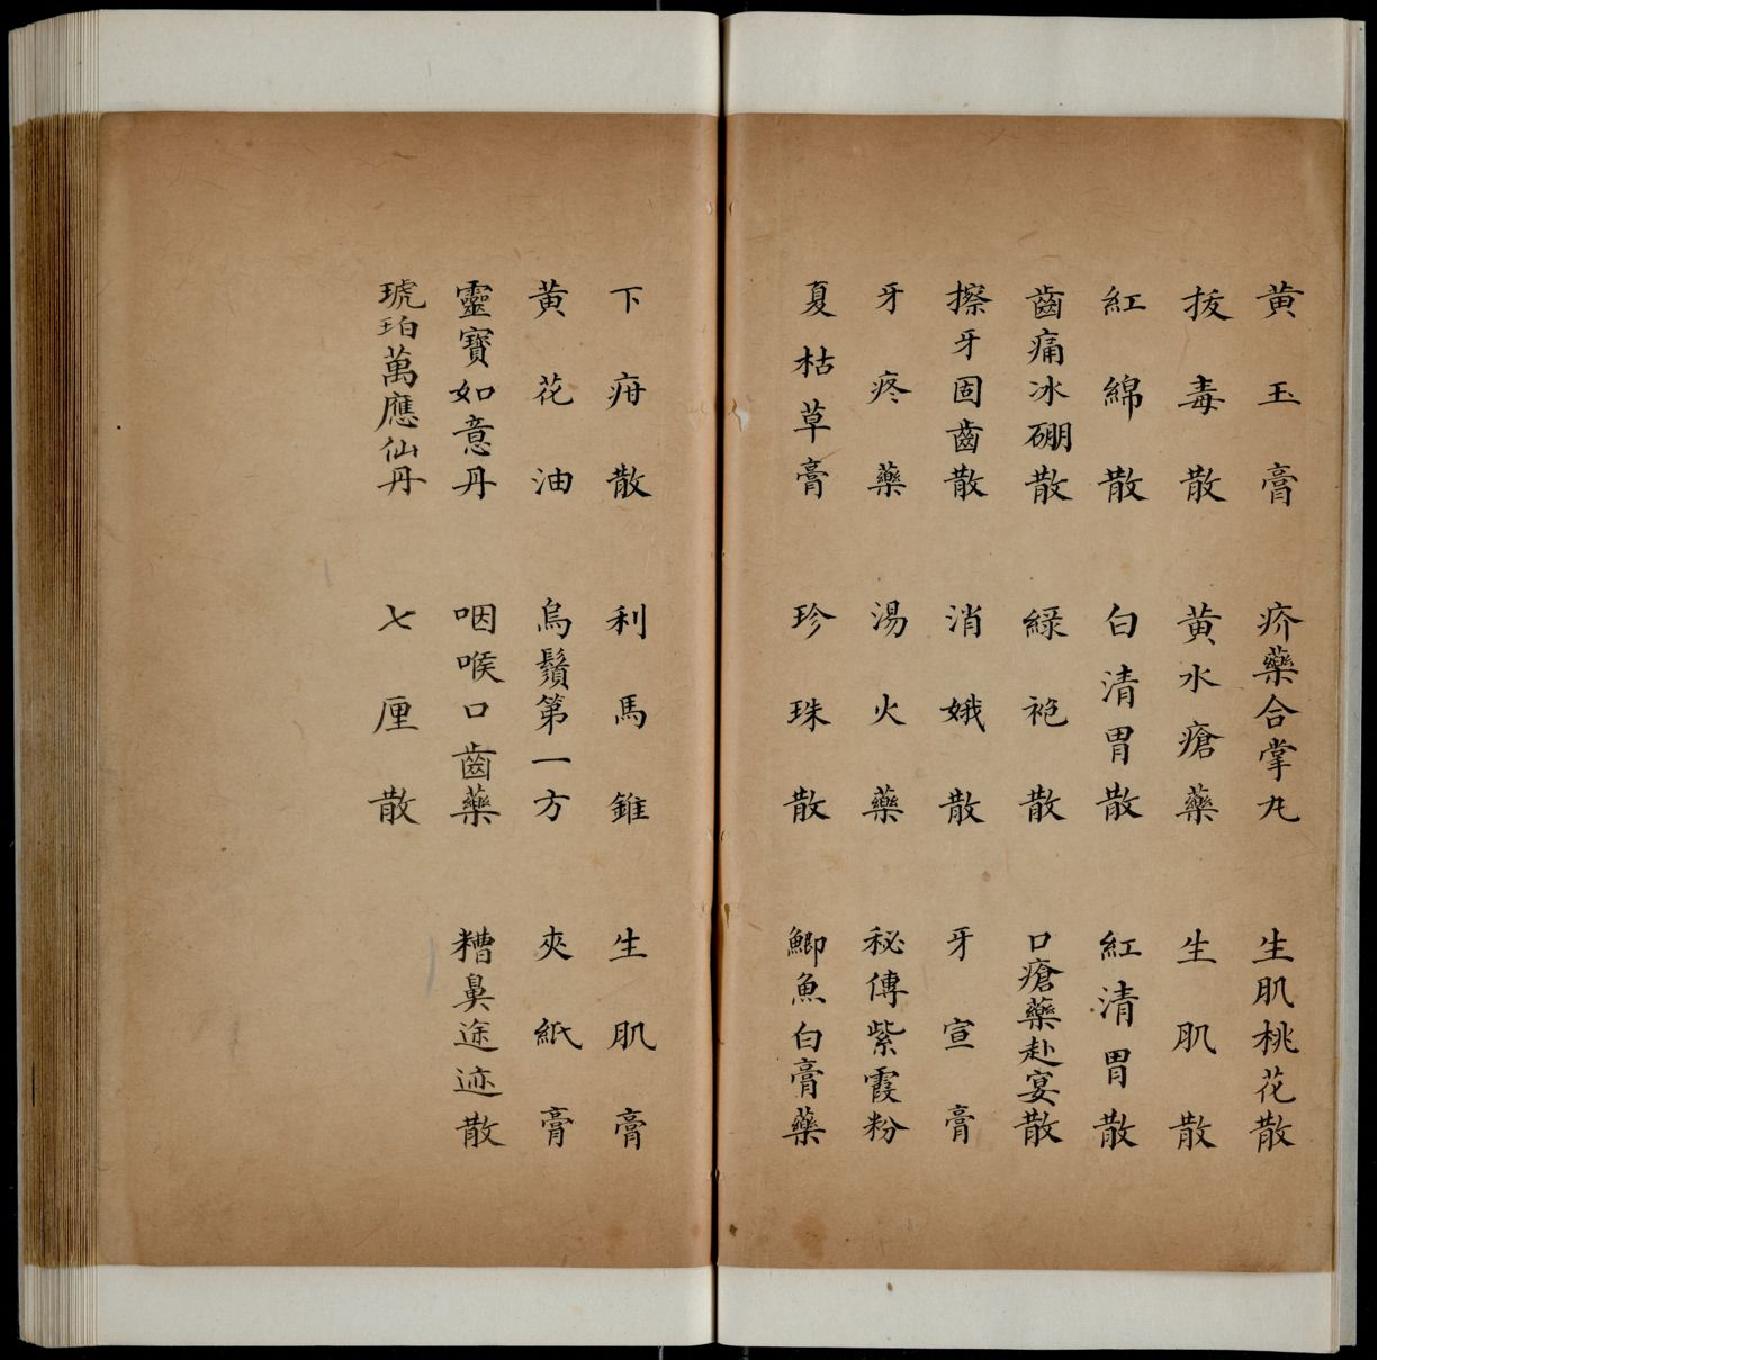 黄玉膏　疥藥合掌丸　生肌桃花散
拔毒散　黄水瘡藥　生肌散
紅綿散　白清胃散　紅清胃散
齒痛冰硼散　綠袍散　口瘡藥赴宴散
擦牙固齒散　消娥散　牙宣膏
牙疼藥　湯火藥　秘傳紫霞粉
夏枯草膏　珍珠散　鯽魚白膏藥
下疳散　利馬錐　生肌膏
黄花油　烏鬚第一方　夾紙膏
靈寶如意丹　咽喉口齒藥　糟鼻途迹散
琥珀萬應仙丹　七厘散